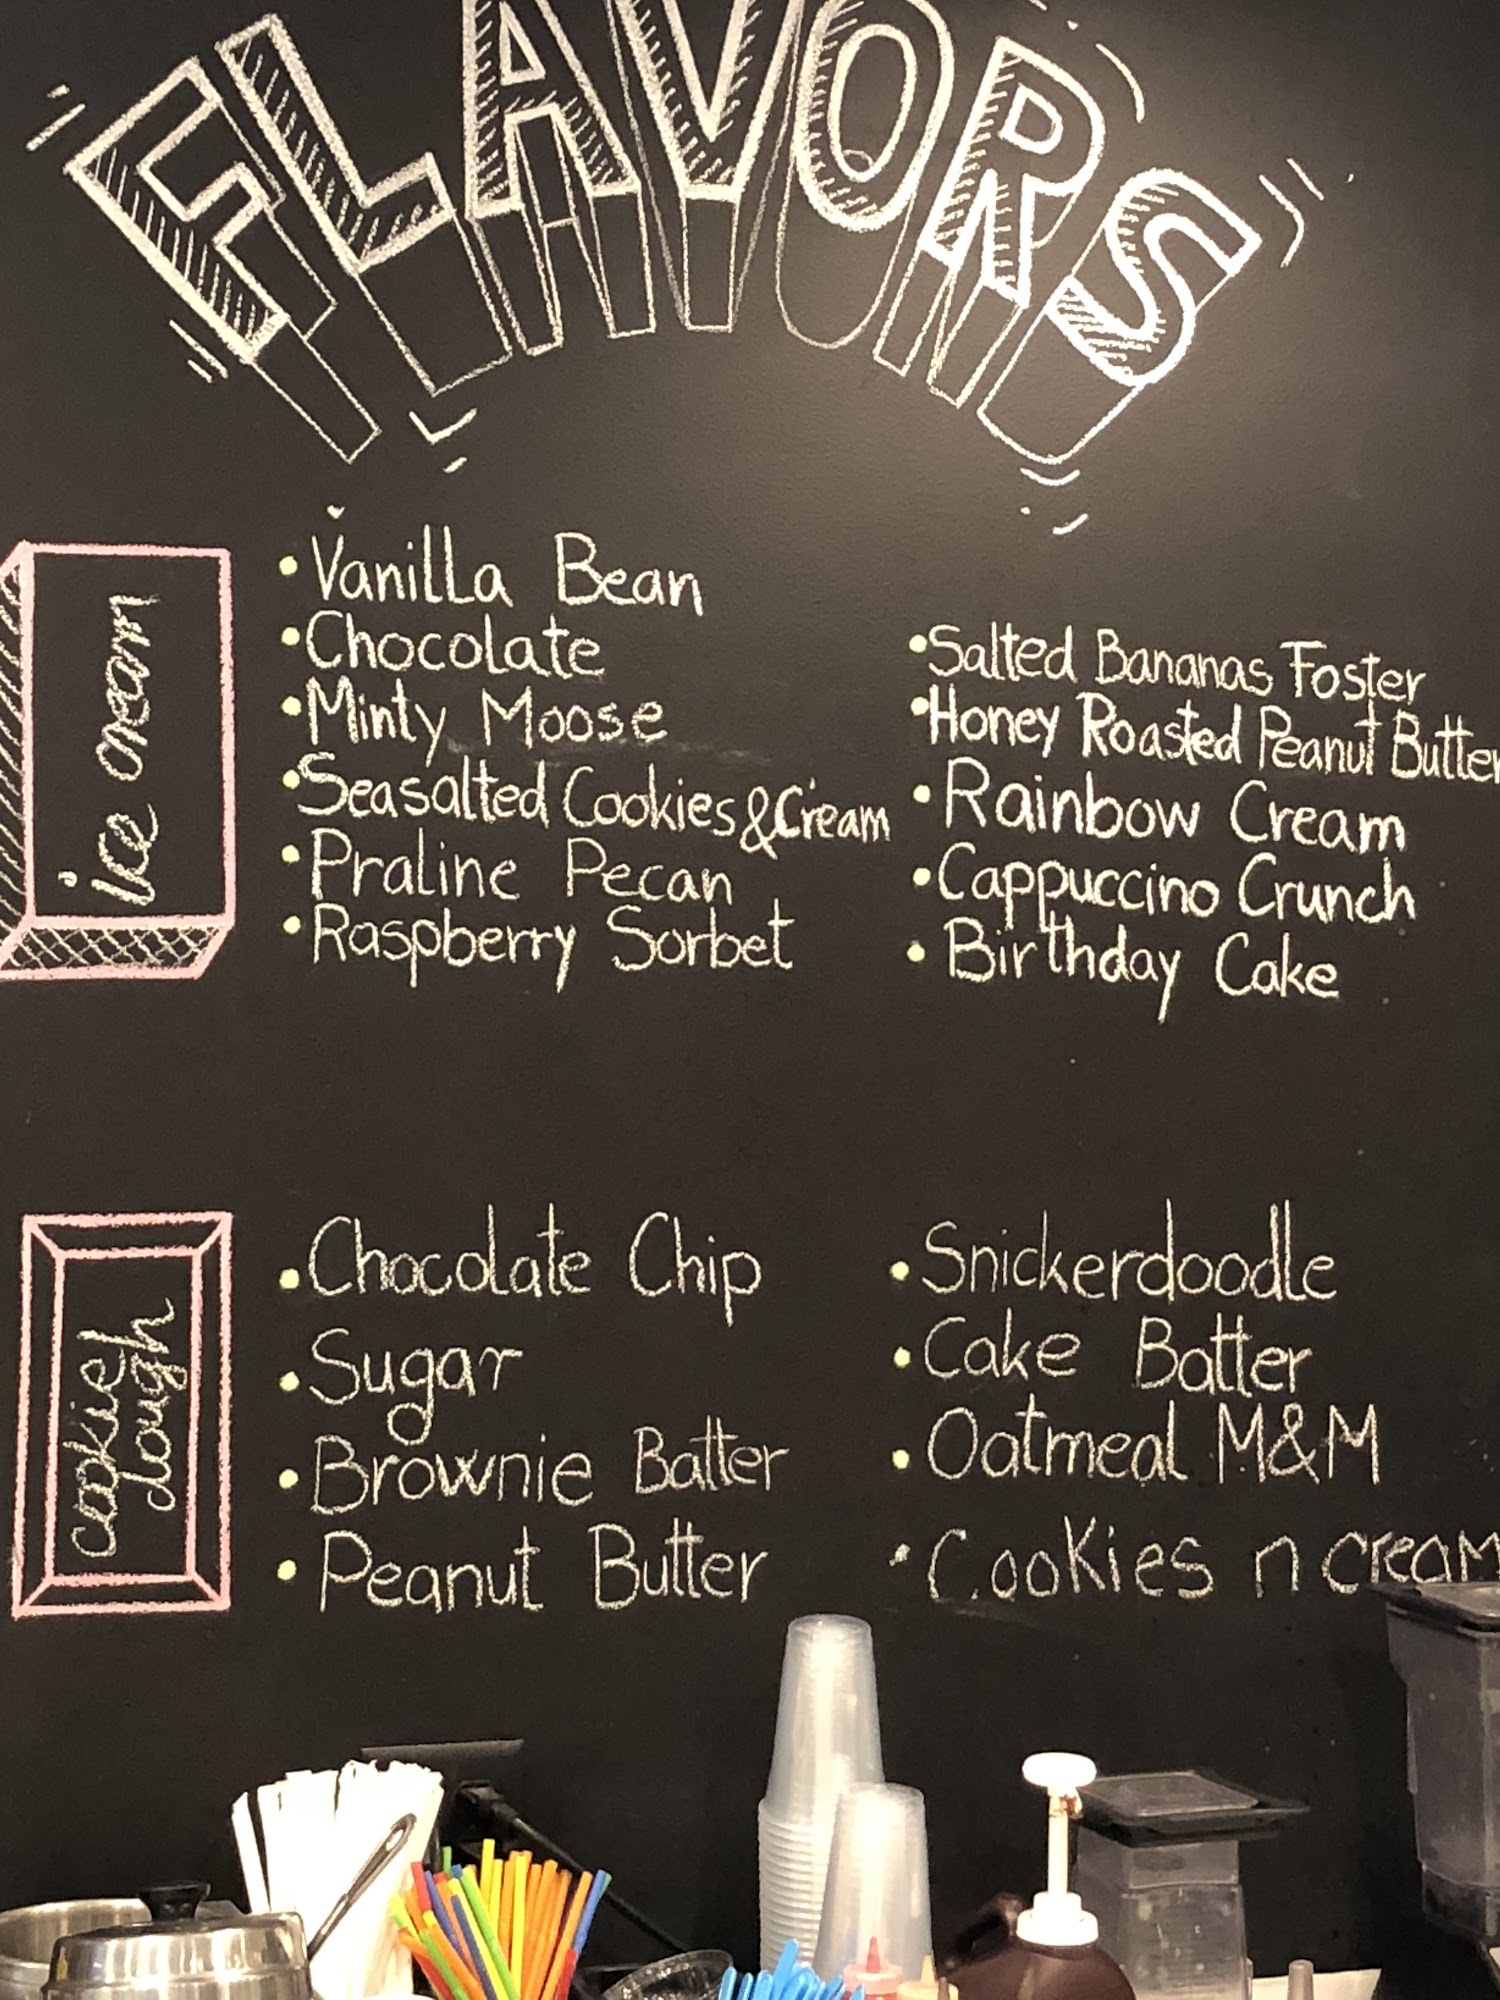 FLAVORS
ice cream
• Vanilla Bean
• Chocolate
• Minty Moose
• Seasalted Cookies & Cream
• Praline Pecan
• Raspberry Sorbet
• Salted Bananas Foster
• Honey Roasted Peanut Butter
• Rainbow Cream
• Cappuccino Crunch
• Birthday Cake
cookie
dough
• Chocolate Chip
• Sugar
• Brownie Batter
• Peanut Butter
• Snickerdoodle
• Cake Batter
• Oatmeal M&M
• Cookies n cream